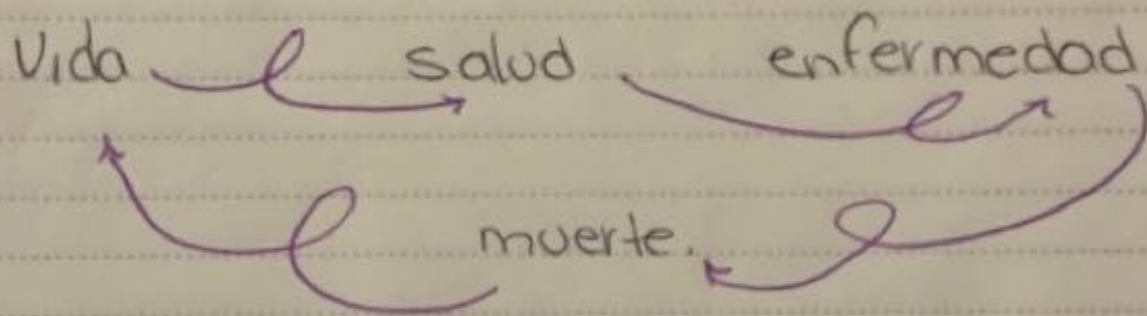 Vida salud enfermedad
muerte.